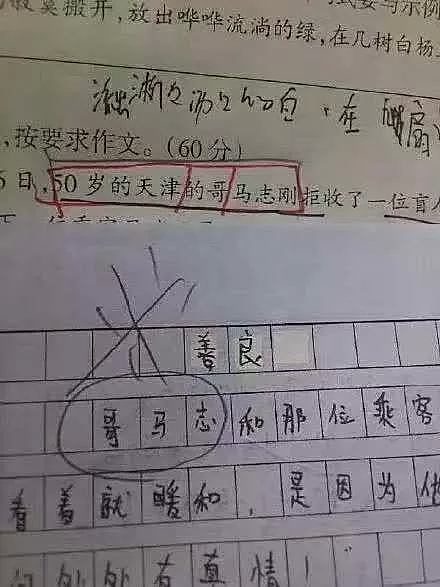 寂寞搬开，放出哗哗流淌的绿，在几树白杨
流出淅淅沥沥的白，在
，按要求作文。（60分）
5日，50岁的天津的哥马志刚拒收了一位盲人
善良
哥马志和那位乘客
看着就暖和，是因为他
处处有真情！